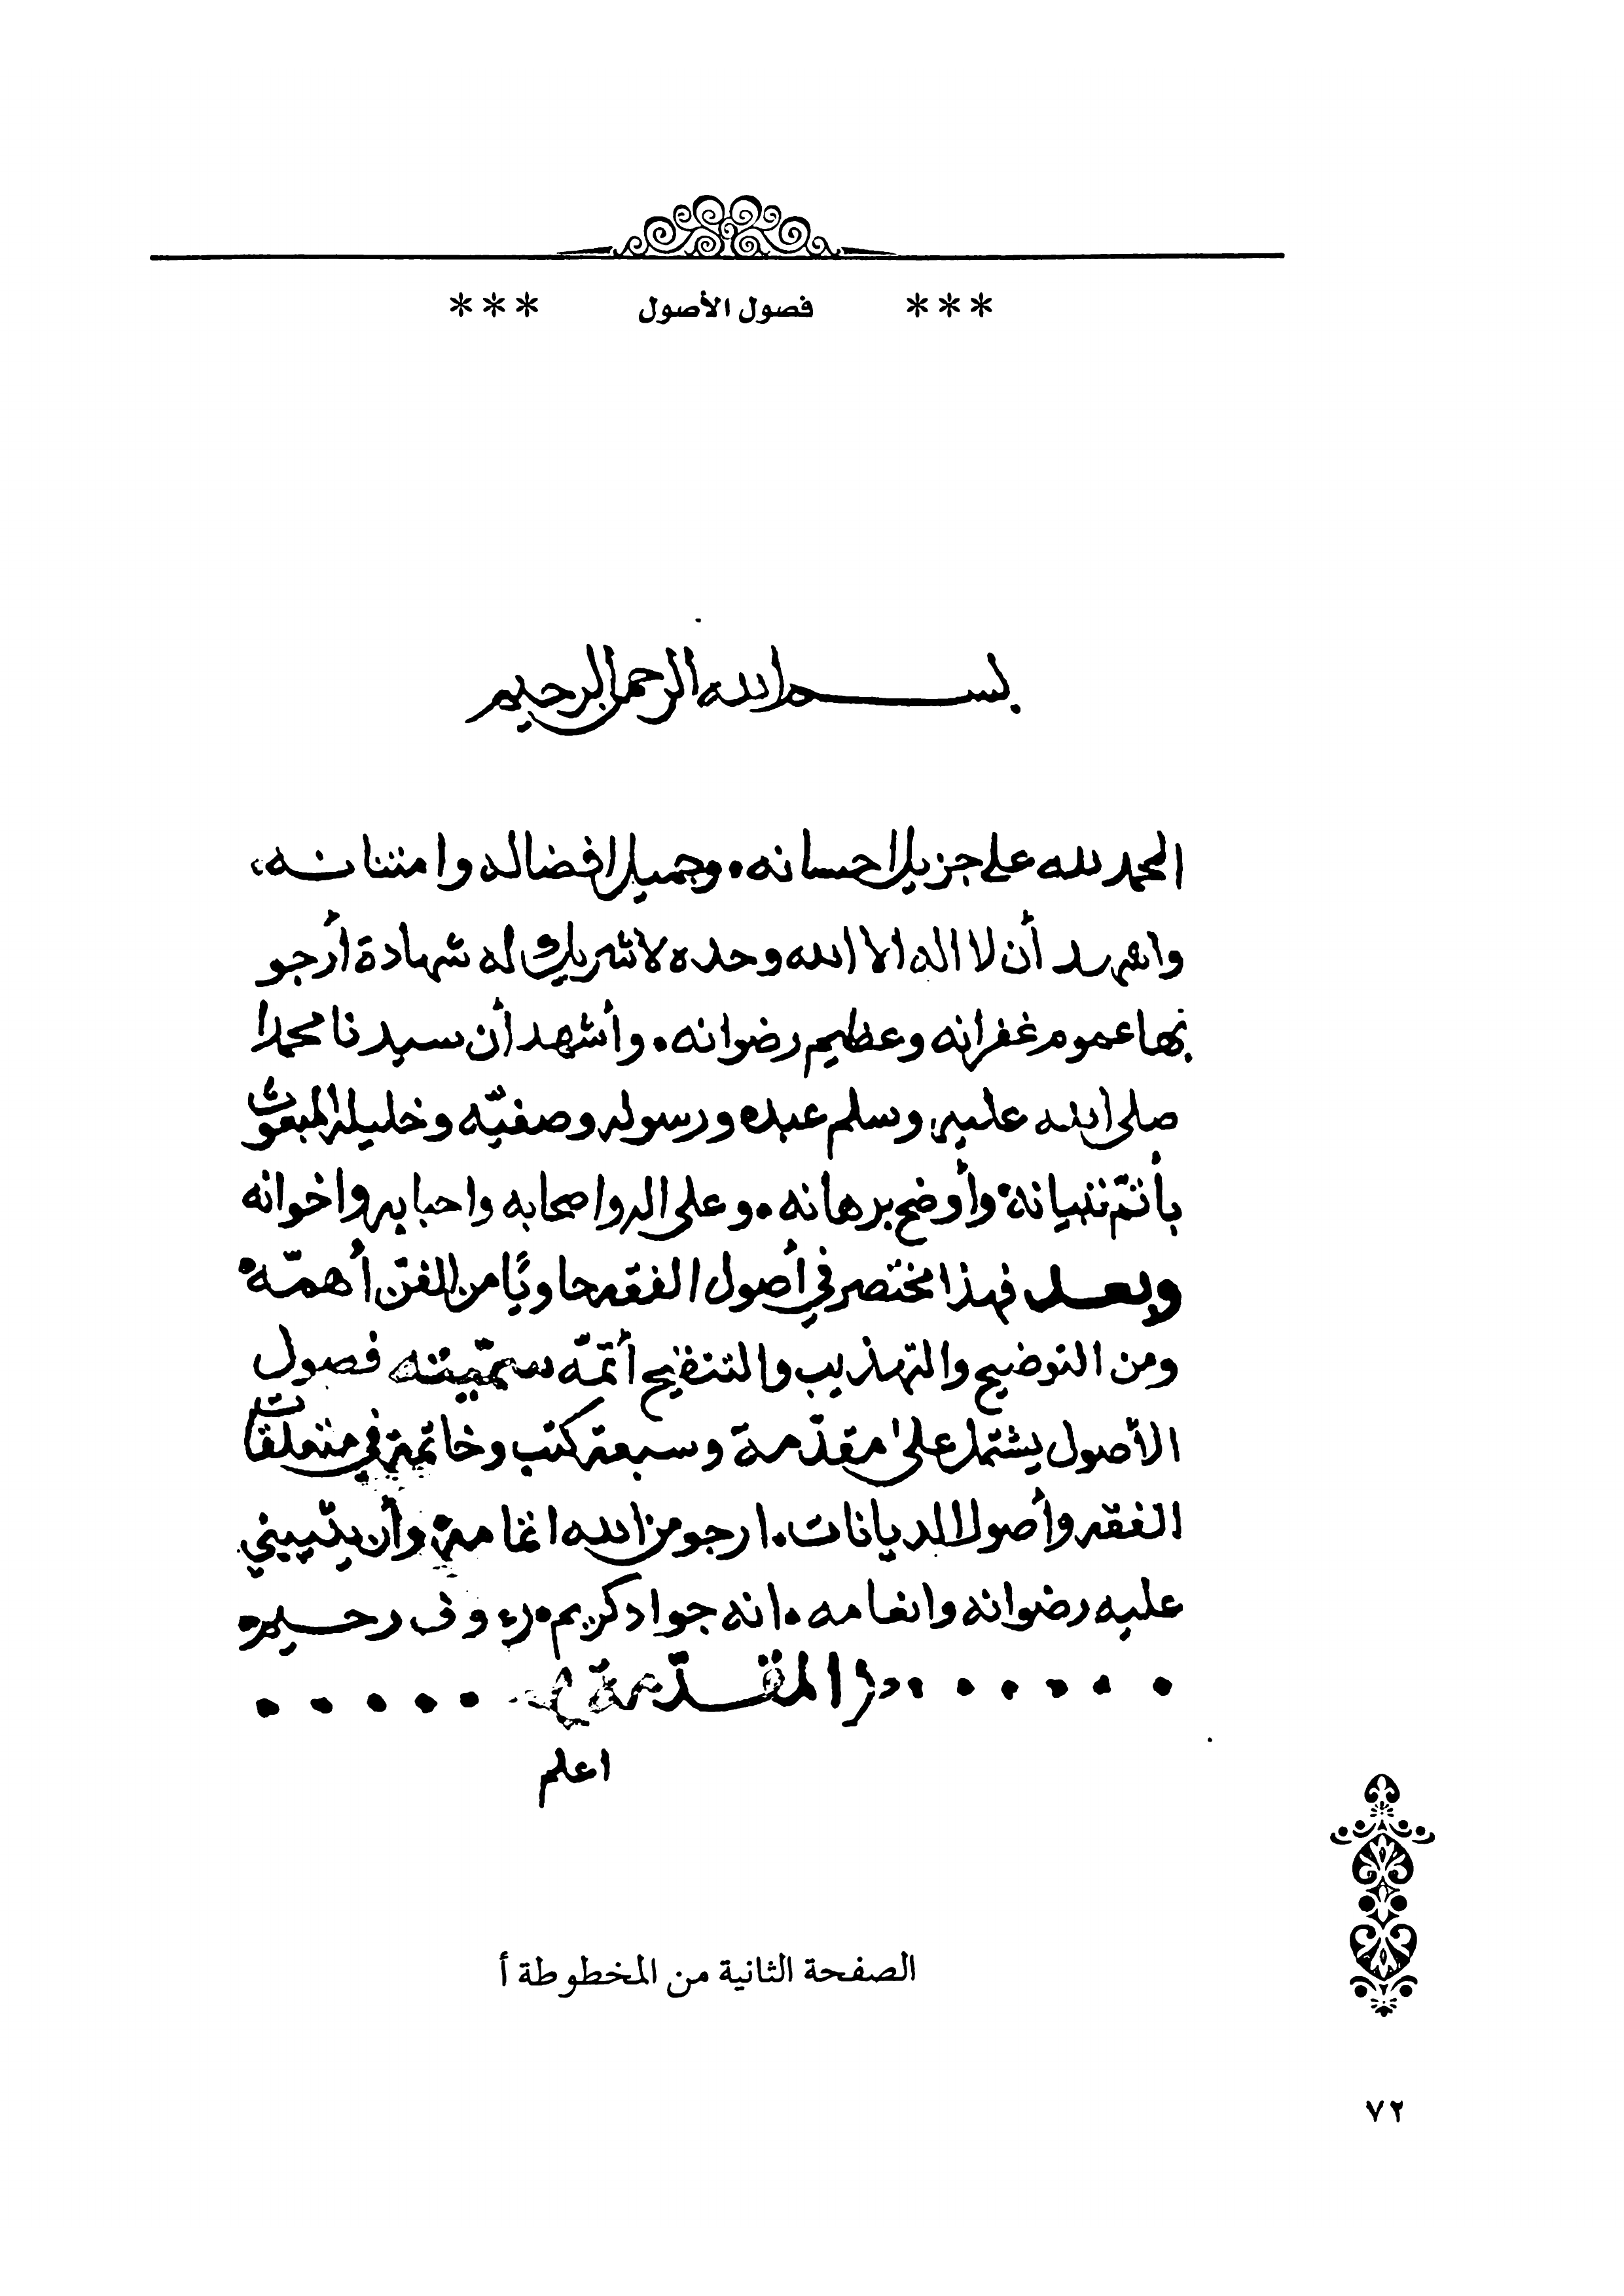 *** فصول الأصول ***
بسم الله الرحمن الرحيم
الحمد لله على جزيل احسانه. وجميل افضاله وامتنانه،
واشهد أن لا اله الا الله وحده لا شريك له شهادة أرجو
بها عموم غفرانه وعظيم رضوانه. وأشهد أن سيدنا محمدا
صلى الله عليه وسلم عبده ورسوله وصفيّه وخليله المبعوث
بأتمّ تبيانه. وأوضح برهانه. وعلى اله واصحابه واحبابه واخوانه
وبعد فهذا مختصر في أصول الفقه حاويًا من الفنّ أهمّه.
ومن التوضيح والتهذيب والتنقيح أتمّه سمّيته فصول
الأصول يشتمل على مقدّمة وسبعة كتب وخاتمة في متعلقات
الفقه وأصول الديانات. ارجو من الله اتمامه. وأن يثيبني
عليه رضوانه وانعامه. انه جواد كريم. رءوف رحيم.
. . . . . . (المقدّمة) . . . . .
اعلم
الصفحة الثانية من المخطوطة أ
٧٢